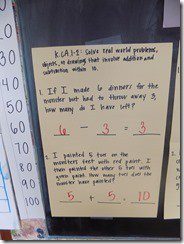 10
20
30
40
50
60
70
80
90
100
Solve real world problems,
objects, or drawing that involve addition and
subtraction within 10.
1. If I made 6 dinners for the
monster but had to throw away 3,
how many do I have left?
6 - 3 = 3
2. I painted 5 toes on the
monsters feet with red paint. I
then painted the other 5 toes with
green paint. How many toes does the
monster have painted?
5 + 5 = 10